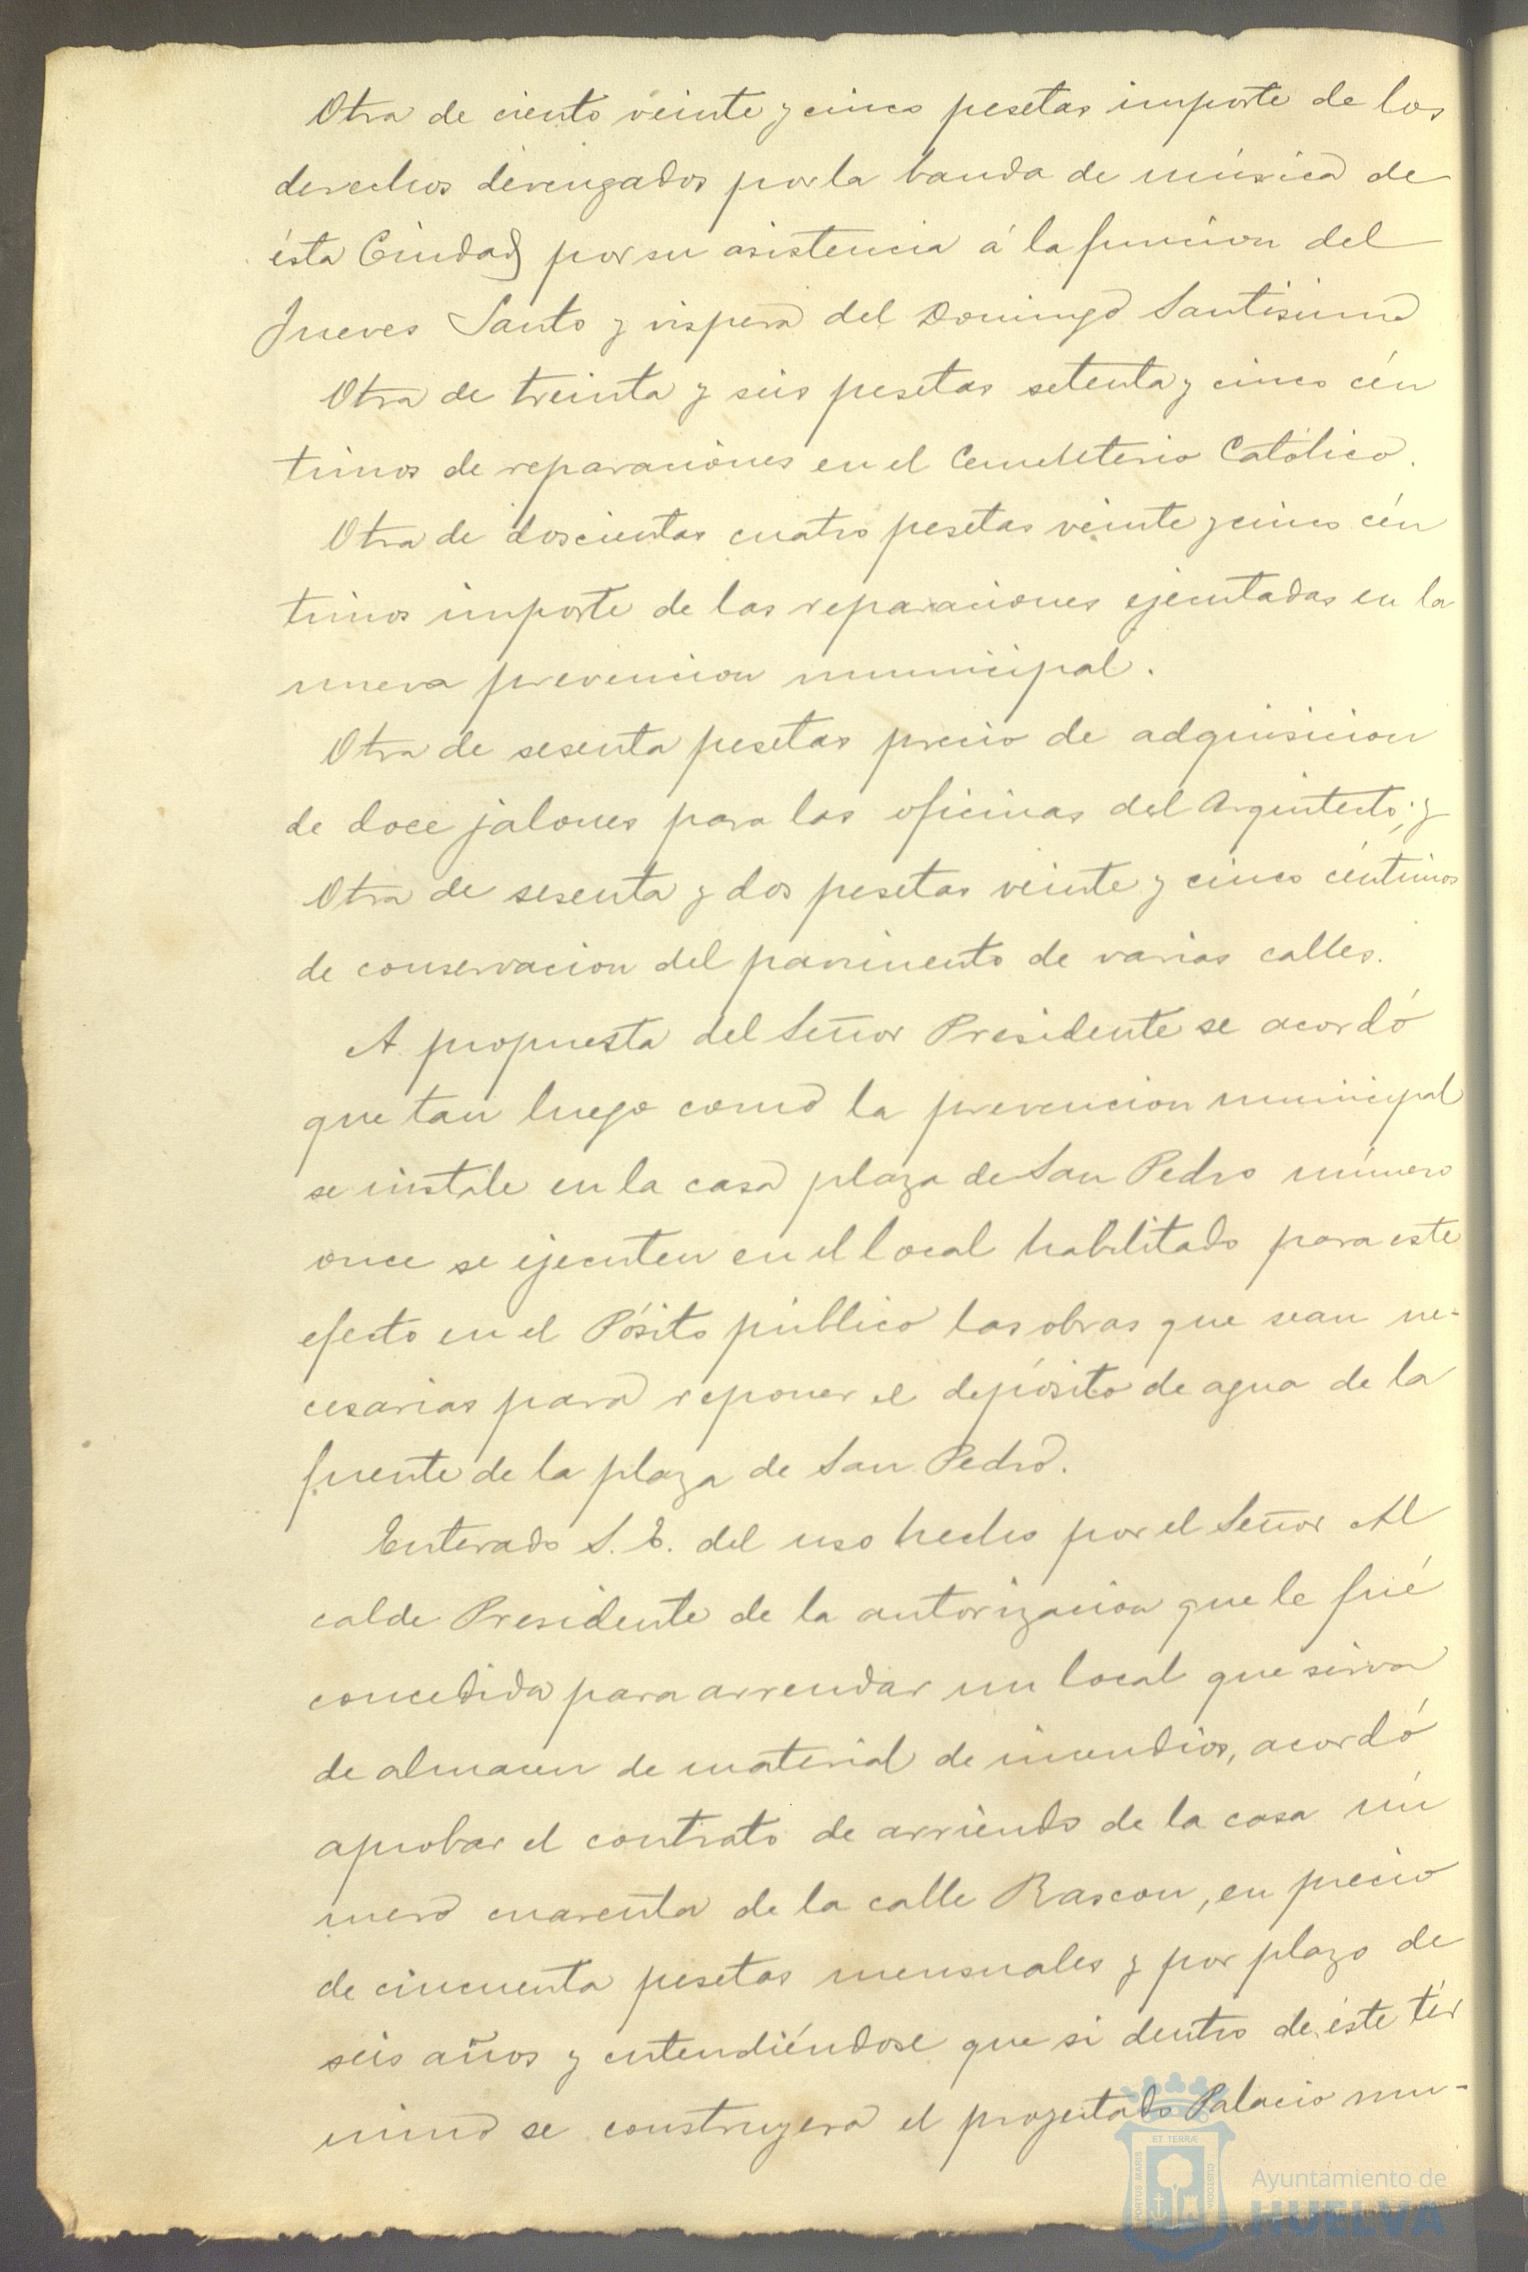 Otra de ciento veinte y cinco pesetas importe de los
derechos devengados por la banda de música de
ésta Ciudad por su asistencia á la funcion del
Jueves Santo y vispera del Domingo Santisimo
Otra de treinta y seis pesetas setenta y cinco cén
timos de reparaciónes en el Cementerio Católico.
Otra de doscientas cuatro pesetas veinte y cinco cén
timos importe de las reparaciones ejecutadas en la
nueva prevencion municipal.
Otra de sesenta pesetas precio de adquisicion
de doce jalones para las oficinas del Arquitecto; y
Otra de sesenta y dos pesetas veinte y cinco céntimos
de conservacion del pavimento de varias calles.
A propuesta del Señor Presidente se acordó
que tan luego como la prevencion municipal
se instale en la casa plaza de San Pedro número
once se ejecuten en el local habilitado para este
efecto en el Pósito público las obras que sean ne-
cesarias para reponer el depósito de agua de la
fuente de la plaza de San Pedro.
Enterado S. E. del uso hecho por el Señor Al
calde Presidente de la autorizacion que le fué
concedida para arrendar un local que sirva
de almacen de material de incendios, acordó
aprobar el contrato de arriendo de la casa nú
mero cuarenta de la calle Rascon, en precio
de cincuenta pesetas mensuales y por plazo de
seis años y entendiéndose que si dentro de éste tér
mino se construyera el proyectado Palacio mu-
ET TERRÆ
PORTUS MARIS
CUSTODIA
Ayuntamiento de
HUELVA